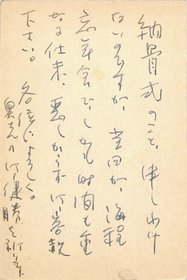 納骨式のこと、申しわけ
ないのですが、当日が、海程
忘年会でしかも時間も重
なる仕末、悪しからず御容赦
下さい。各位によろしく。
御健勝を祈ります